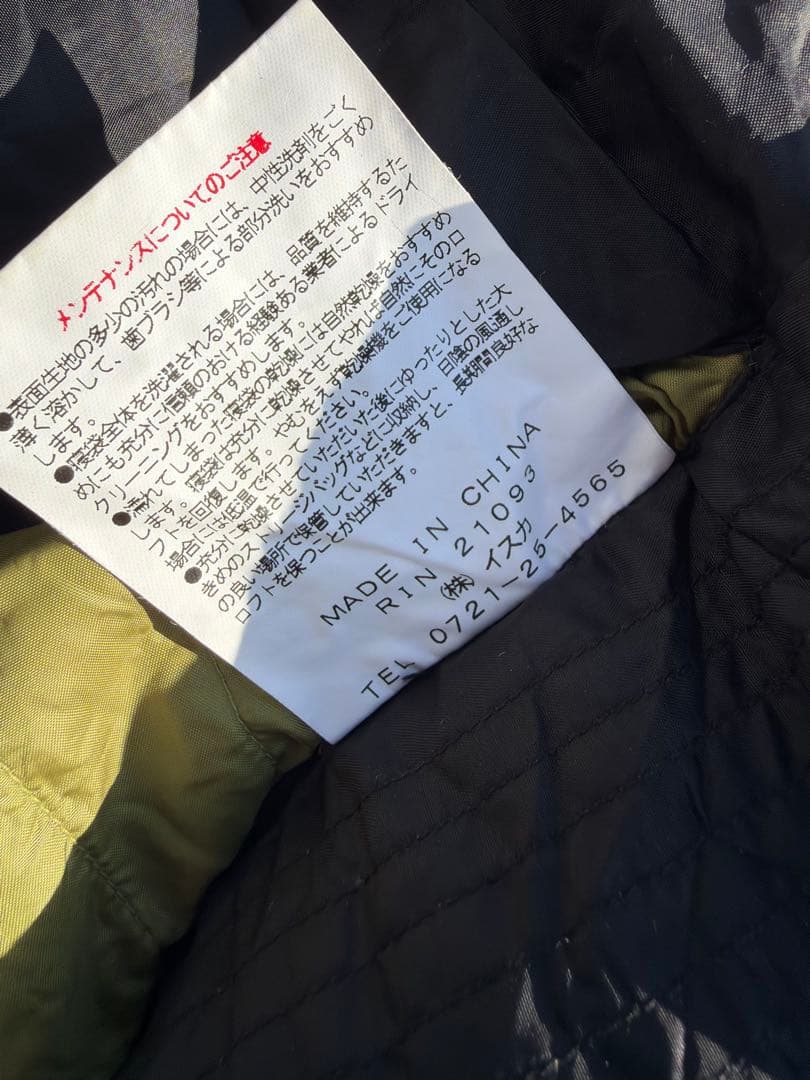 メンテナンスについてのご注意
●表面生地の多少の汚れの場合には、中性洗剤をごく
薄く溶かして、歯ブラシ等による部分洗いをおすすめ
します。
●寝袋全体を洗濯される場合には、品質を維持するた
めにも充分に信頼のおける経験ある業者によるドライ
クリーニングをおすすめします。
●濡れてしまった寝袋の乾燥には自然乾燥をおすすめ
します。寝袋は充分に乾燥させてやれば自然にそのロ
フトを回復します。やむをえず乾燥機をご使用になる
場合には低温で行ってください。
●充分に乾燥させていただいた後にゆったりとした大
きめのストレージバッグなどに収納し、日陰の風通し
の良い場所で保管していただきますと、長期間良好な
ロフトを保つことが出来ます。
MADE IN CHINA
RIN 21093
(株) イスカ
TEL 0721-25-4565